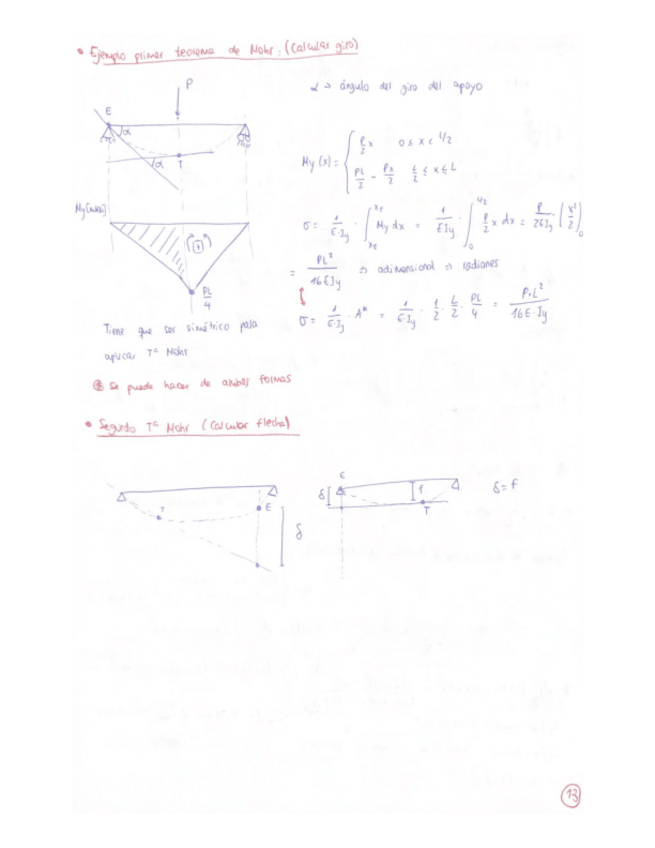 • Ejemplo primer teorema de Mohr: (Calcular giro)
P
α → ángulo del giro del apoyo
E
α
α
T
My (x) = { P/2 x   0 ≤ x < L/2
PL/2 - Px/2   L/2 ≤ x ≤ L
σ = 1/(E·Iy) · ∫ My dx = 1/(E Iy) · ∫₀^(L/2) P/2 x dx = P/(2EIy) (x²/2)
(+)
PL/4
= PL²/(16 E Iy) ⇒ adimensional ⇒ radianes
σ = 1/(E·Iy) · A* = 1/(E·Iy) · 1/2 · L/2 · PL/4 = P·L²/(16 E·Iy)
Tiene que ser simétrico para
aplicar Tª Mohr
Se puede hacer de ambas formas
• Segundo Tª Mohr (Calcular flecha)
T
E
δ
E
δ
f
T
δ = f
13